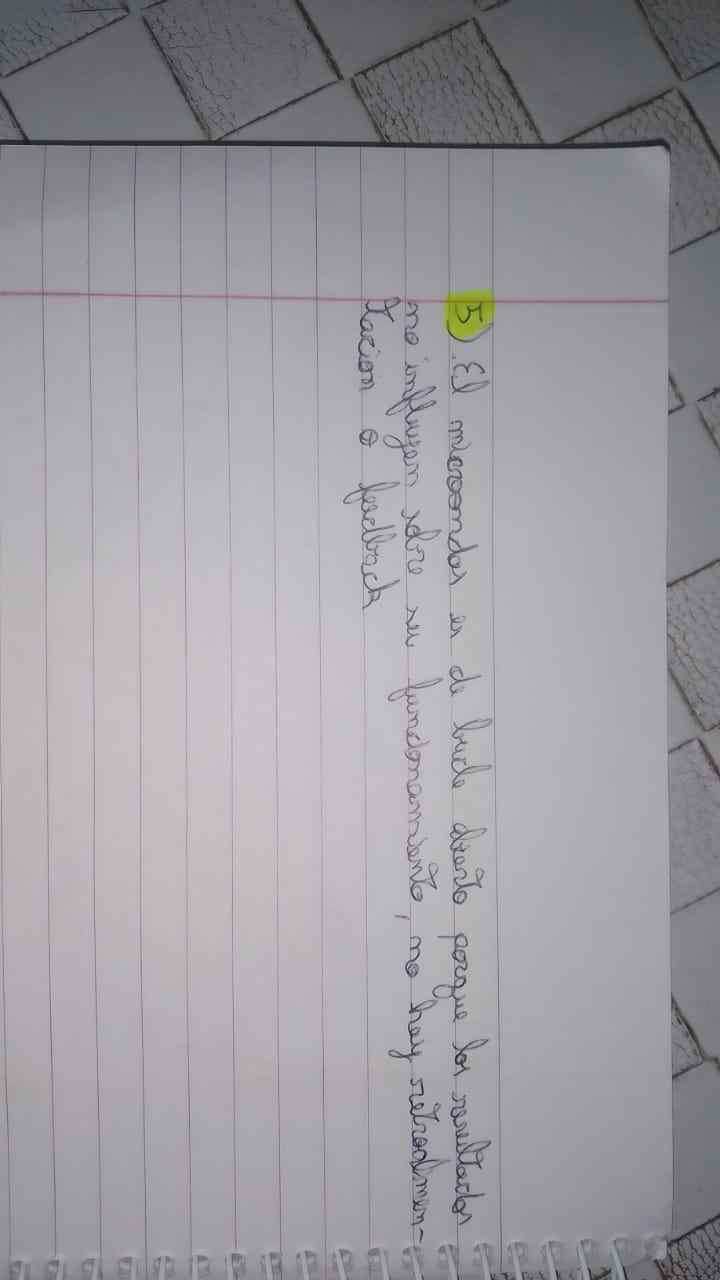 5) El microondas es de bucle abierto porque los resultados
no influyen sobre su funcionamiento, no hay retroalimen-
tacion o feedback